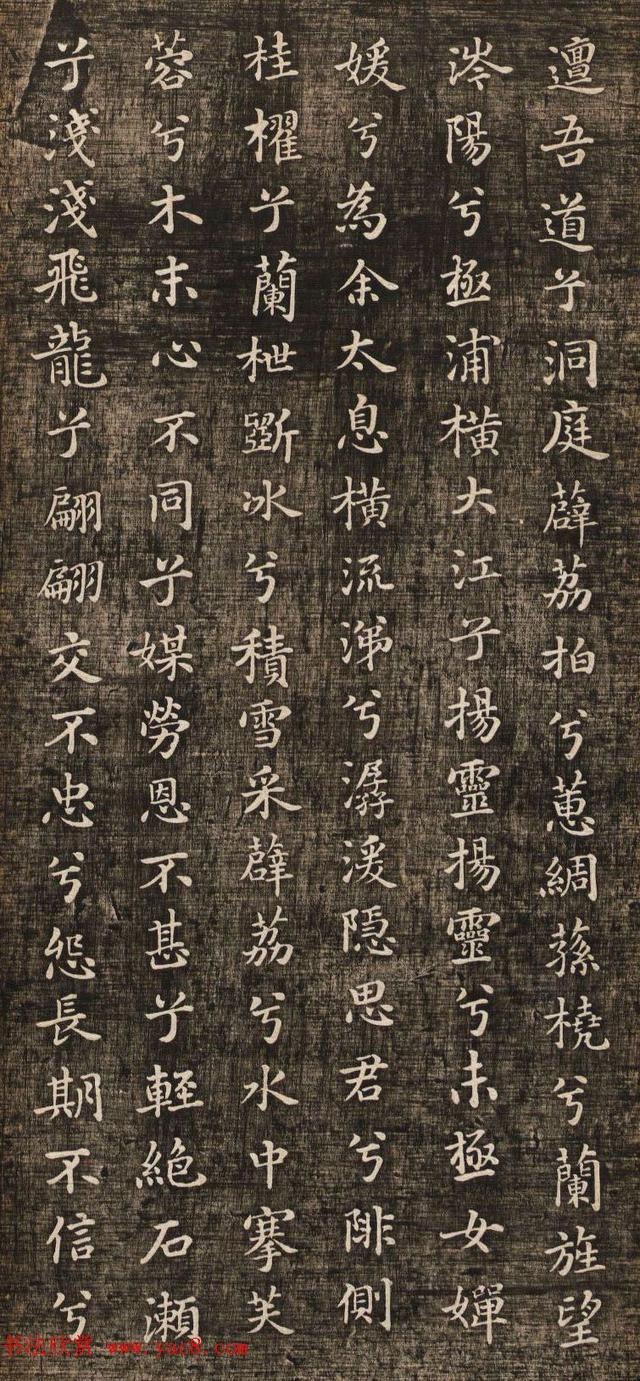 邅吾道兮洞庭薜荔拍兮蕙綢蓀橈兮蘭旌望
涔陽兮極浦橫大江兮揚靈揚靈兮未極女嬋
媛兮為余太息橫流涕兮潺湲隐思君兮陫側
桂櫂兮蘭枻斵冰兮積雪采薜荔兮水中搴芙
蓉兮木末心不同兮媒勞恩不甚兮輕絕石瀨
兮淺淺飛龍兮翩翩交不忠兮怨長期不信兮
书法欣赏 www.yac8.com